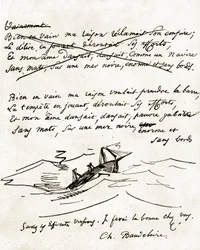 Vainement
Bien en vain ma raison réclamait son empire;
Le délire, en jouant, déroutait ses efforts,
Et mon âme dansait, dansait, comme un navire
Sans mâts, sur une mer noire, énorme et sans bords.
Bien en vain ma raison voulait prendre la barre,
La tempête en jouant, déroutait ses efforts,
Et mon âme dansait, dansait, pauvre gabarre
Sans mâts, sur une mer noire, énorme et
sans bords
vapeurs. Je ferai la bonne chez
Ch. Baudelaire.